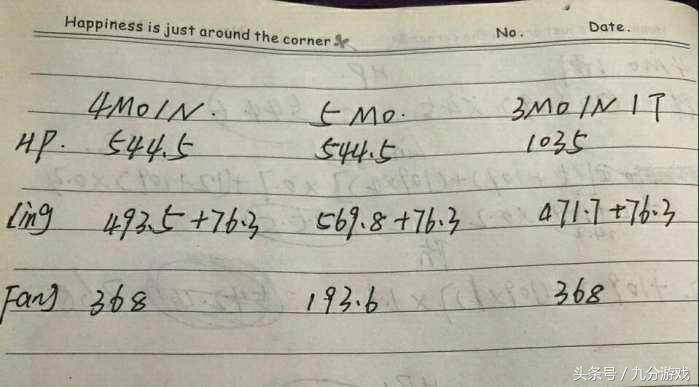 Happiness is just around the corner
No. Date.
4MO1N. 5 MO. 3MO1N 1T
HP. 544.5 544.5 1035
ling 493.5+76.3 569.8+76.3 471.7+76.3
Fang 368 193.6 368
头条号 / 九分游戏